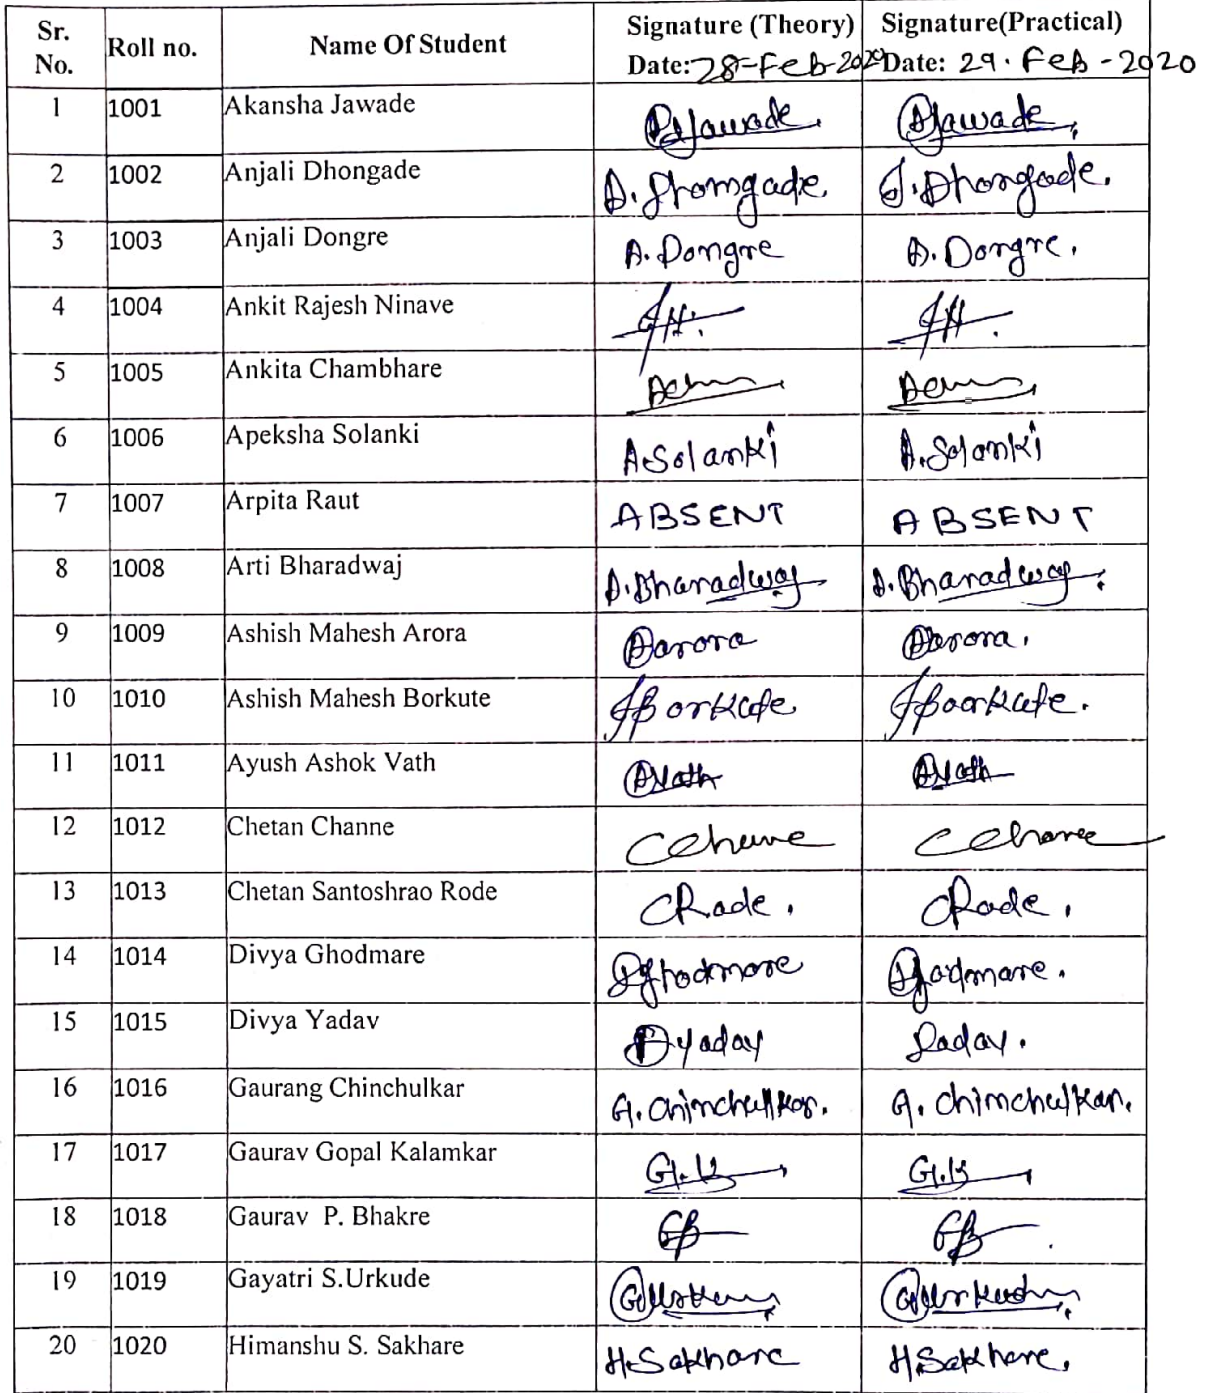 Sr. No. Roll no. Name Of Student Signature (Theory) Date: 28-Feb-2020 Signature(Practical) Date: 29. Feb - 2020
1 1001 Akansha Jawade AJawade. AJawade,
2 1002 Anjali Dhongade A. Dhongade. A. Dhongade.
3 1003 Anjali Dongre A. Dongre A. Dongre.
4 1004 Ankit Rajesh Ninave
5 1005 Ankita Chambhare
6 1006 Apeksha Solanki A.Solanki A.Solanki
7 1007 Arpita Raut ABSENT ABSENT
8 1008 Arti Bharadwaj A.Bharadwaj A.Bharadwaj.
9 1009 Ashish Mahesh Arora Aarora Aarora.
10 1010 Ashish Mahesh Borkute
11 1011 Ayush Ashok Vath AVath AVath
12 1012 Chetan Channe
13 1013 Chetan Santoshrao Rode CRode. CRode.
14 1014 Divya Ghodmare Dghodmare
15 1015 Divya Yadav Dyadav
16 1016 Gaurang Chinchulkar G. Chinchulkar. G. Chinchulkar.
17 1017 Gaurav Gopal Kalamkar G.K G.K
18 1018 Gaurav P. Bhakre GB GB
19 1019 Gayatri S.Urkude
20 1020 Himanshu S. Sakhare H.Sakhare H.Sakhare.